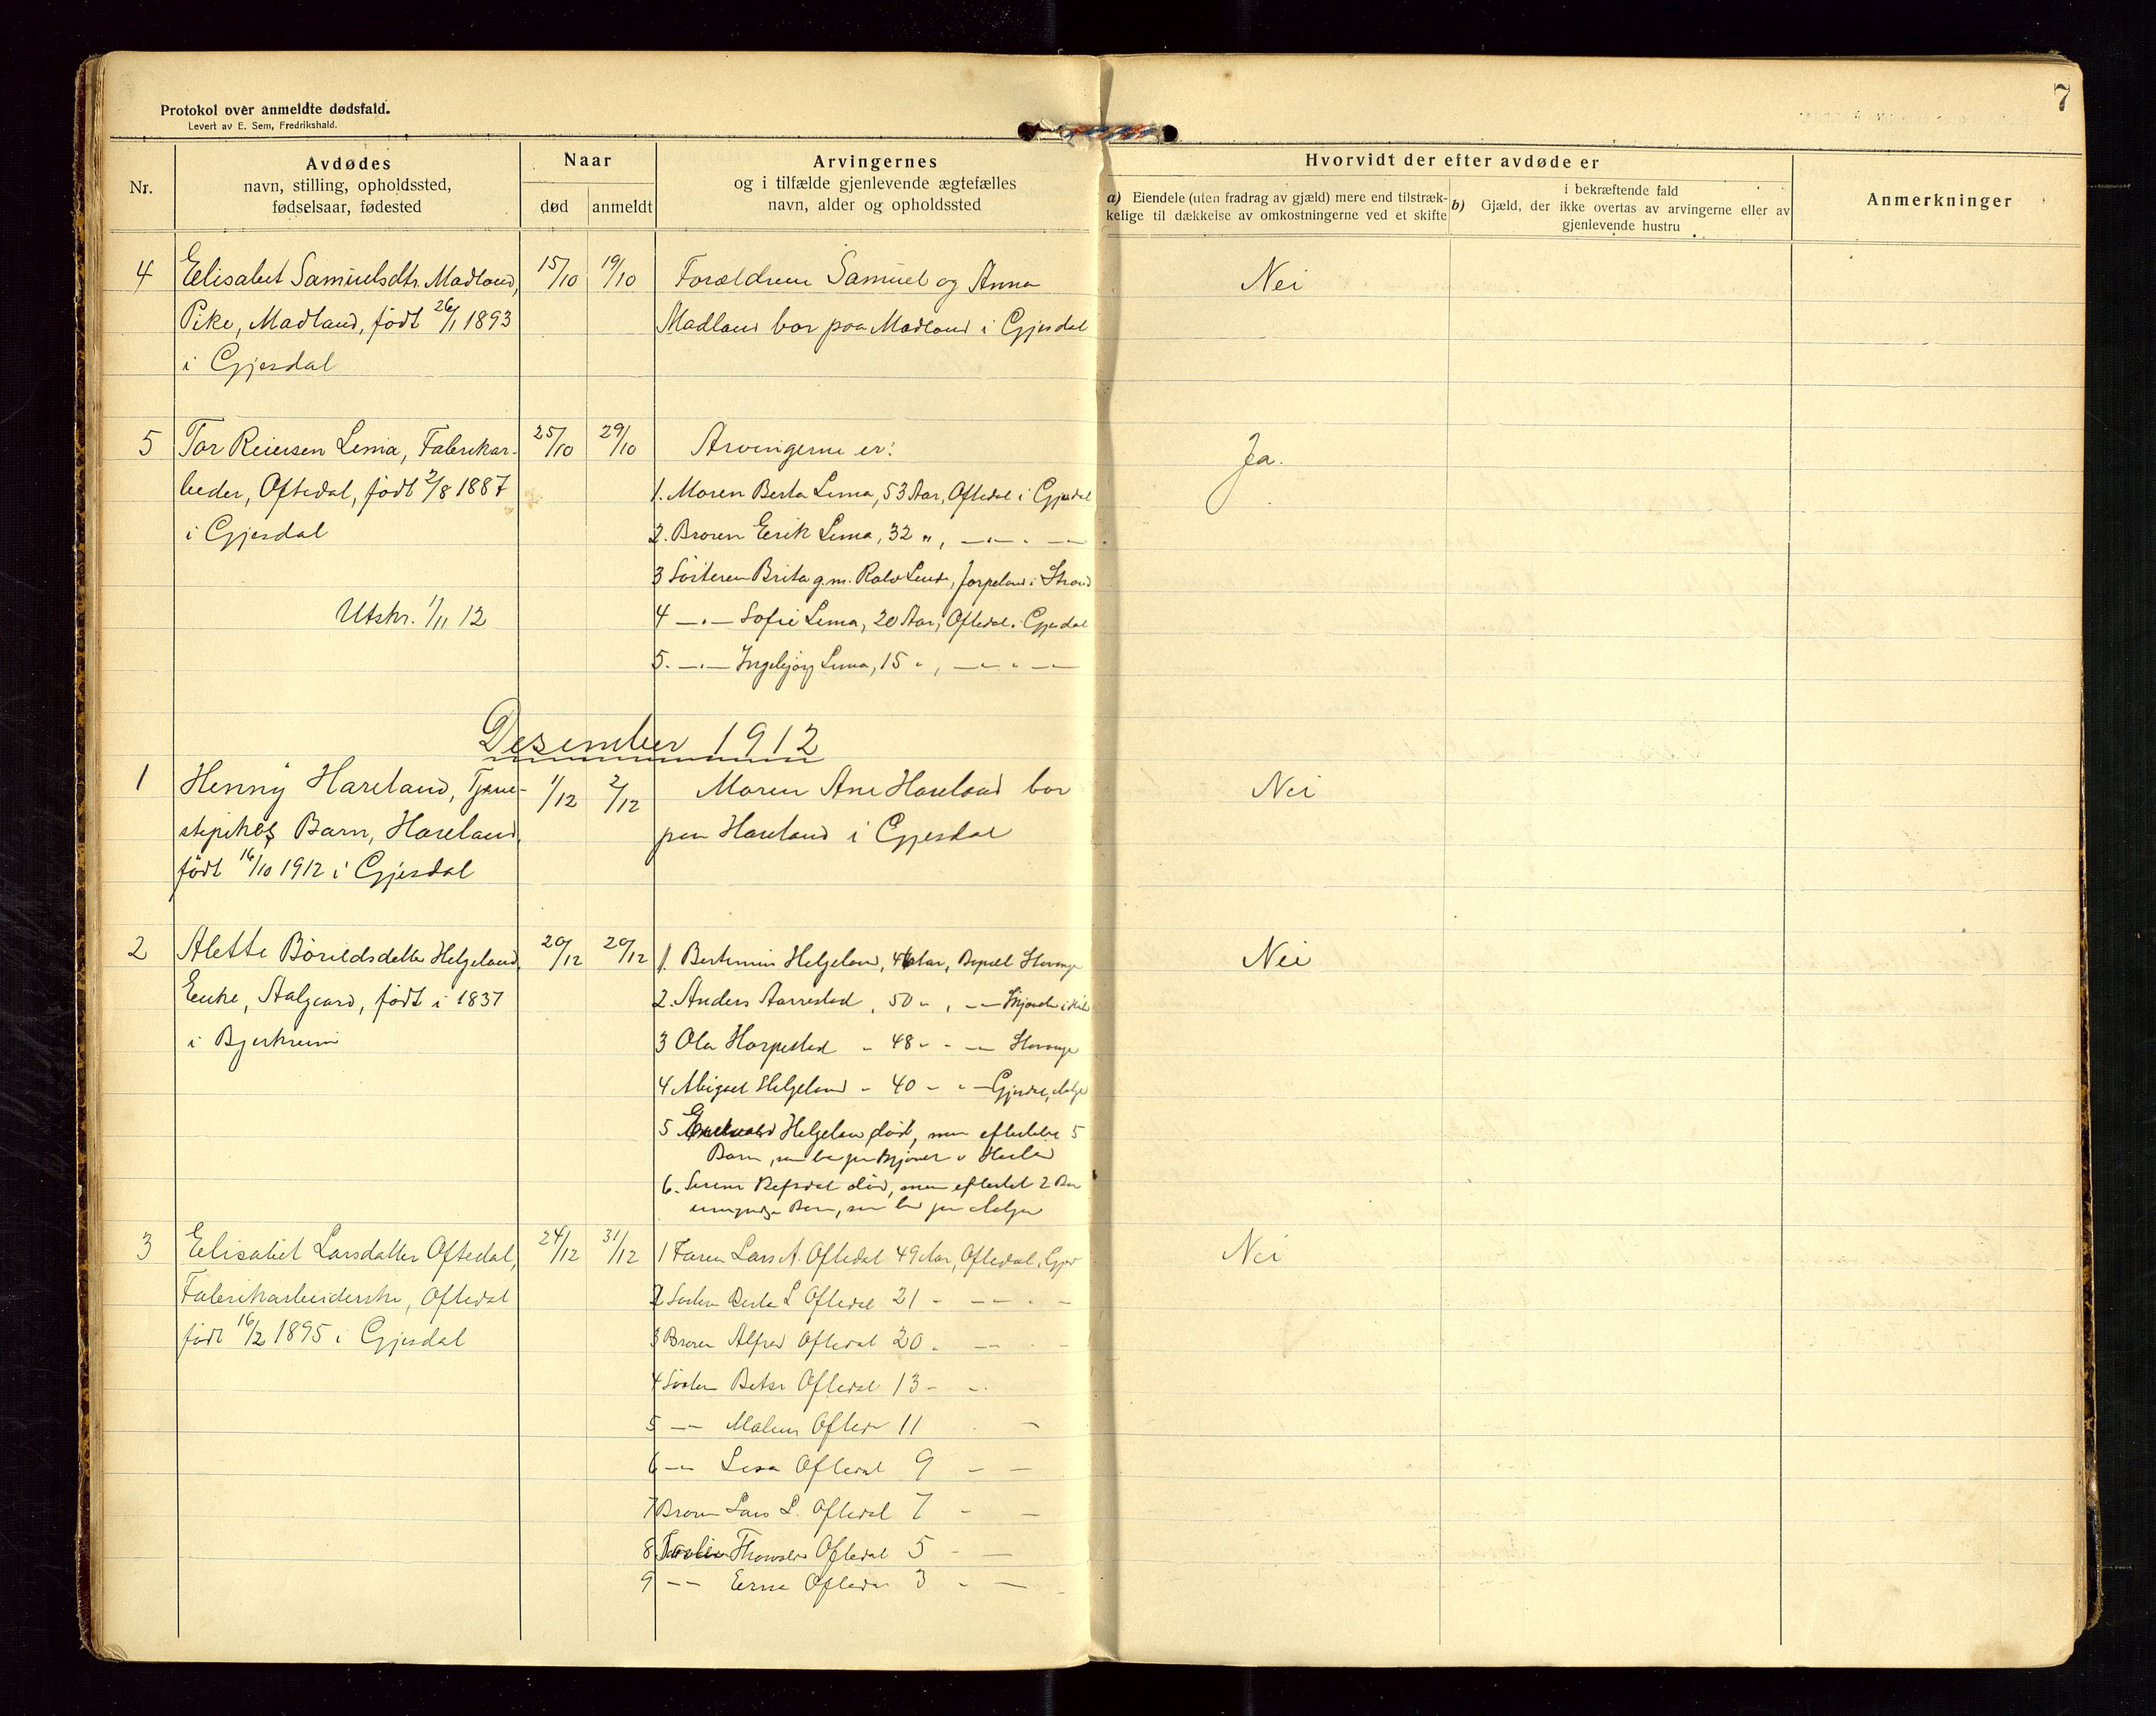 7
Protokol over anmeldte dødsfald.
Levert av E. Sem, Fredrikshald.
Nr.
Avdødes
navn, stilling, opholdssted,
fødselsaar, fødested
Naar
død
anmeldt
Arvingernes
og i tilfælde gjenlevende ægtefælles
navn, alder og opholdssted
Hvorvidt der efter avdøde er
a) Eiendele (uten fradrag av gjæld) mere end tilstræk-
kelige til dækkelse av omkostningerne ved et skifte
i bekræftende fald
b) Gjæld, der ikke overtas av arvingerne eller av
gjenlevende hustru
Anmerkninger
4
Elisabet Samuelsdtr. Madland,
Pike, Madland, født 26/1 1893
i Gjesdal
15/10
19/10
Forældrene Samuel og Anna
Madland bor paa Madland i Gjesdal
Nei
5
Tor Reiersen Lima, Fabrikar-
beider, Oftedal, født 2/8 1887
i Gjesdal
Utskr. 1/11 12
25/10
29/10
Arvingerne er:
1. Moren Berta Lima, 53 Aar, Oftedal i Gjesdal
2. Broren Eerik Lima, 32 „, —„— - —
3 Søsteren Brita g.m. Lende, Jørpeland i Strand
4 —„— Sofie Lima, 20 Aar, Oftedal i Gjesdal
5. —„— Ingebjørg Lima, 15 „, —„— —
Ja.
Desember 1912
1
Henny Hareland, Tjene-
stepikes Barn, Hareland,
født 16/10 1912 i Gjesdal
1/12
2/12
Moren Ane Hareland bor
paa Hareland i Gjesdal
Nei
2
Alette Børildsdatter Helgeland,
Enke, Aalgaard, født i 1837
i Bjerkreim
20/12
20/12
1. Helgeland, Aar, Stavanger
2. Anders Aarrestad, 50 - , --
3 Ola Harpestad - 48 - - — Stavanger
4 Abigael Helgeland - 40 - - — Gjesdal,
5 Helgeland død, men efterlatt 5
Barn, som bor paa
6. Serine Refsdal død, men efterlat 2
Barn, som bor paa
Nei
3
Elisabet Larsdatter Oftedal,
Fabrikarbeiderske, Oftedal
født 16/2 1895 i Gjesdal
24/12
31/12
1 Faren Lars A. Oftedal 49 Aar, Oftedal,
2 Søsteren Berta L Oftedal 21 - — - —
3 Broren Alfred Oftedal 20 - — - -
4 Søsteren Oftedal 13 - -
5 -- Oftedal 11 -
6 -- Lisa Oftedal 9 - —
7 Broren Lars L. Oftedal 7 - —
8 Oftedal 5 - —
9 -- Oftedal 3 - —
Nei